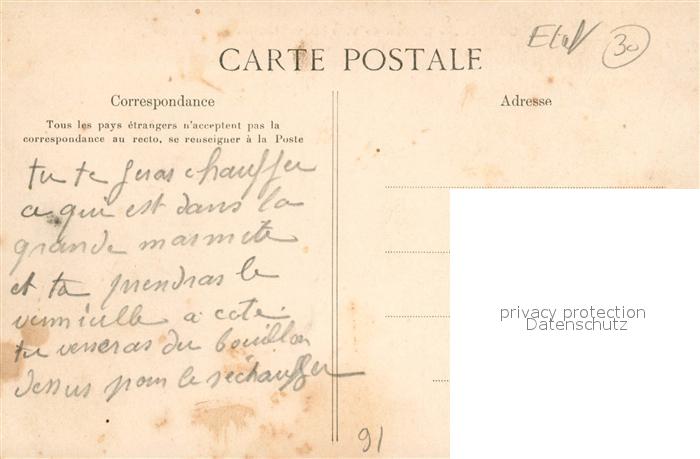 30
CARTE POSTALE
Correspondance
Adresse
Tous les pays étrangers n'acceptent pas la
correspondance au recto, se renseigner à la Poste
tu te feras chauffer
ce qui est dans la
grande marmite
et tu prendras le
vermicelle a coté.
tu verseras du bouillon
dessus pour le rechauffer
privacy protection
Datenschutz
91